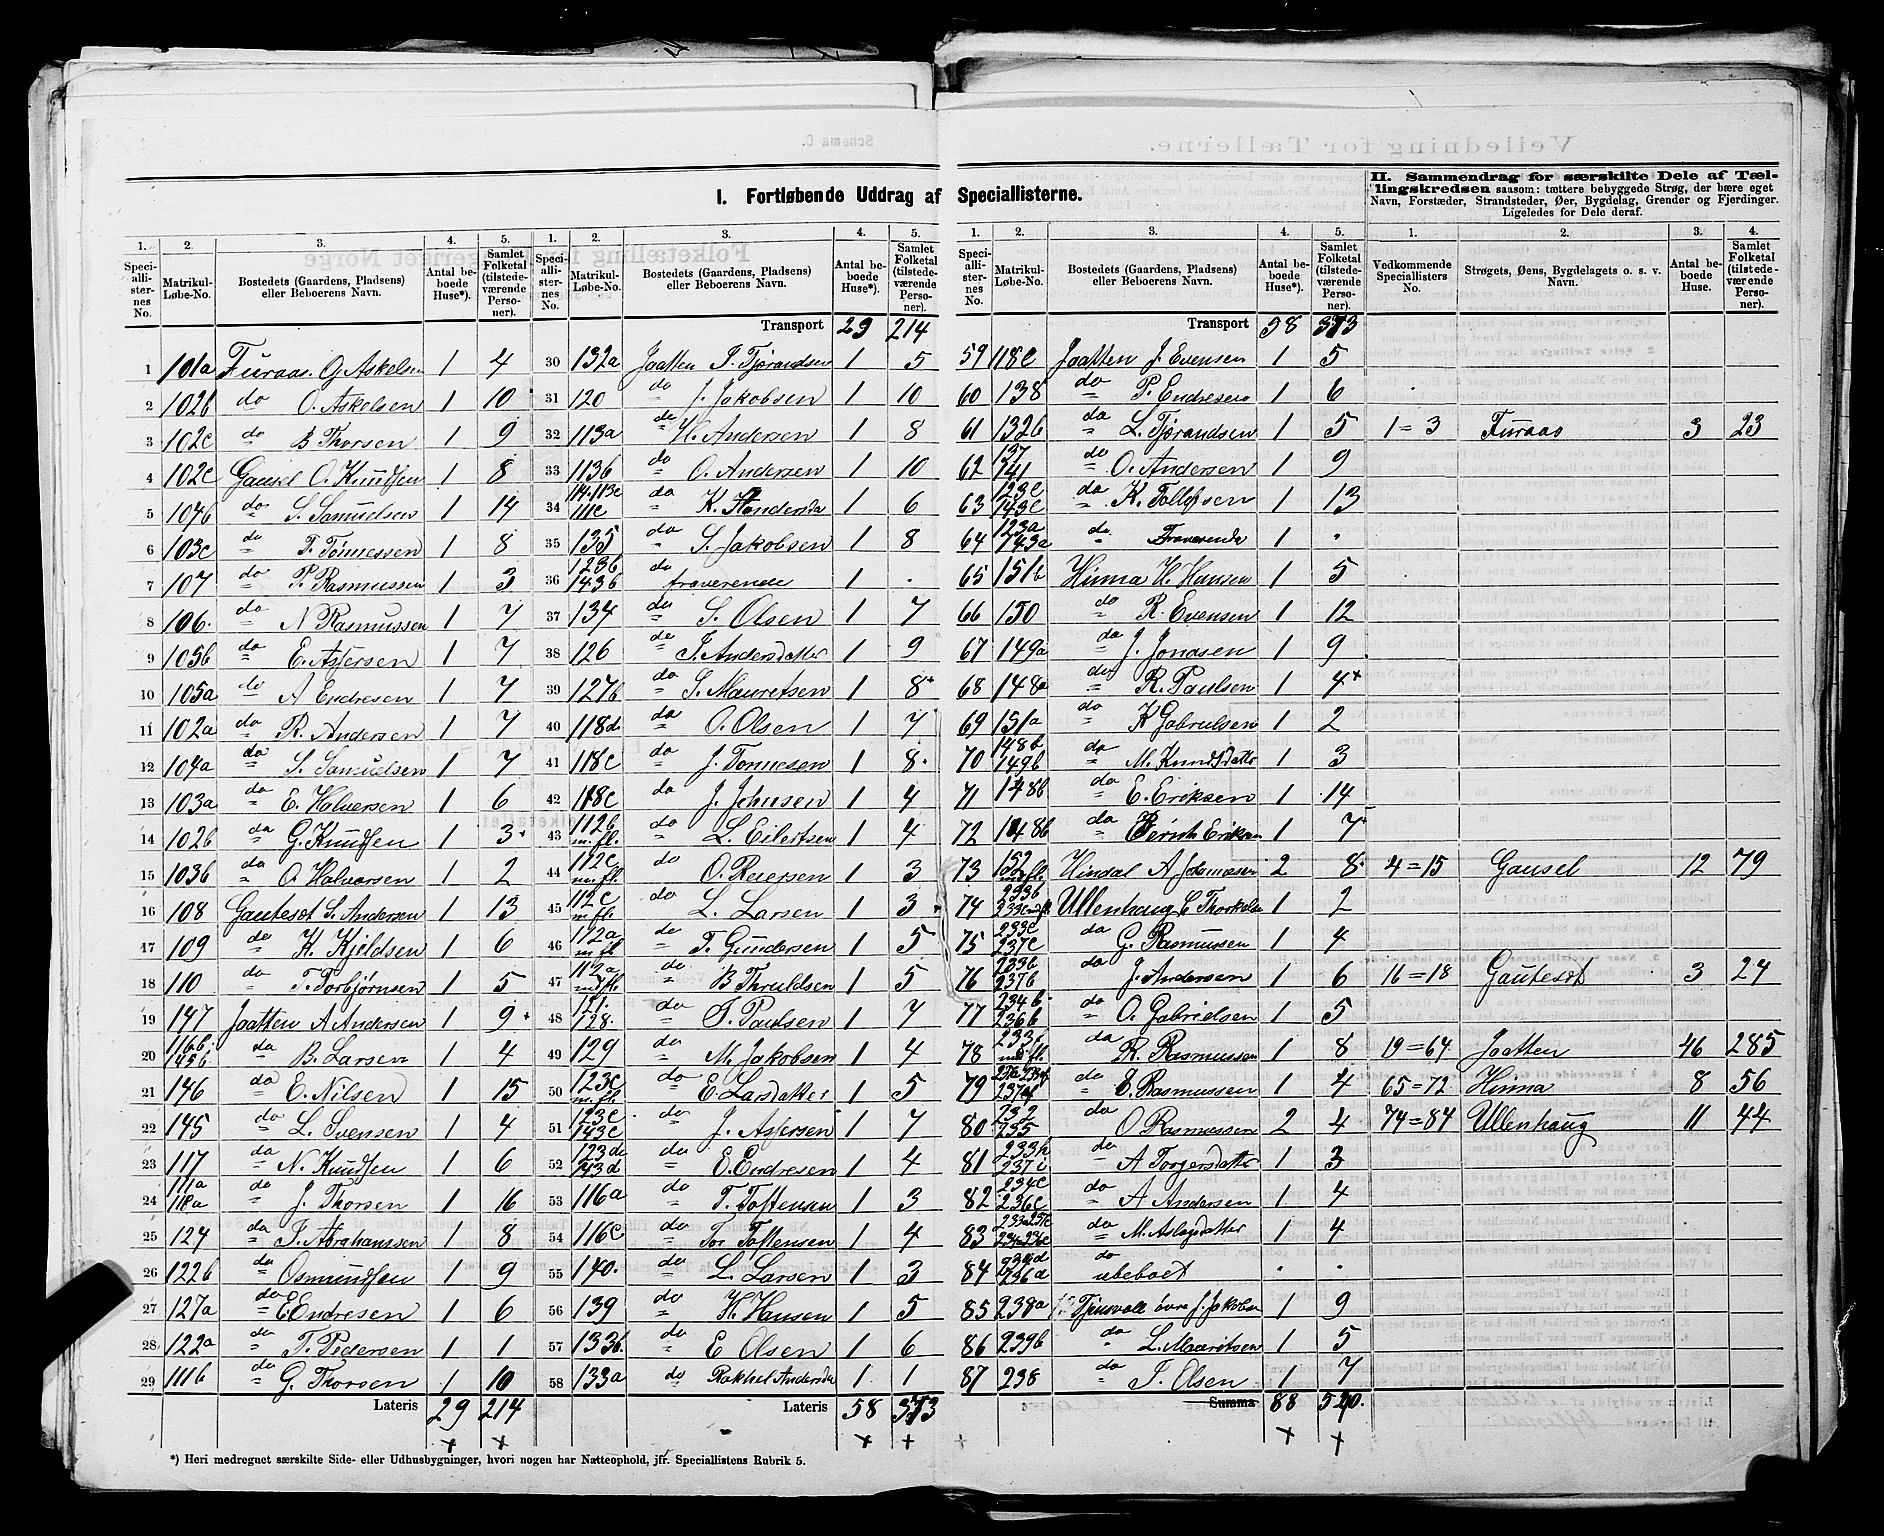 I. Fortløbende Uddrag af Speciallisterne.
1. 2. 3. 4. 5.
Speciallisternes No. Matrikul-Løbe-No. Bostedets (Gaardens, Pladsens) eller Beboerens Navn. Antal beboede Huse*). Samlet Folketal (tilstedeværende Personer).
1 101a Furaas. Askelsen 1 4
2 102b do O. Askelsen 1 10
3 102c do B Thorsen 1 9
4 102c Gausel O. Knudsen 1 8
5 104b do S. Samuelsen 1 14
6 103c do T. Tönnessen 1 8
7 107 do P. Rasmussen 1 3
8 106. do N Rasmussen 1 7
9 105b do E. Assersen 1 7
10 105a do A Endresen 1 7
11 102a do R. Andersen 1 7
12 104a do S. Samuelsen 1 7
13 103a do E. Halversen 1 6
14 102b do G. Knudsen 1 3
15 103b do O Halvorsen 1 2
16 108 Gautesdt S. Andersen 1 13
17 109 do K. Kjeldsen 1 6
18 110 do T. Torbjørnsen 1 5
19 147 Jaatten A Andersen 1 9
20 116b. 145b do B. Larsen 1 4
21 146 do E. Nilsen 1 15
22 145 do L. Svensen 1 4
23 117 do N. Knudsen 1 6
24 111a 118a do J. Thorsen 1 16
25 124 do T. Abrahamsen 1 8
26 122b do Osmundsen 1 9
27 127a do E. Endresen 1 6
28 122a do T. Pedersen 1 1
29 111b do G. Thorsen 1 10
Lateris 29 214
1. 2. 3. 4. 5.
Speciallisternes No. Matrikul-Løbe-No. Bostedets (Gaardens, Pladsens) eller Beboerens Navn. Antal beboede Huse*). Samlet Folketal (tilstedeværende Personer).
Transport 29 214
30 132a Jaatten T. Tjørandsen 1 5
31 120 do J. Jakobsen 1 10
32 113a do H. Andersen 1 8
33 113b do O. Andersen 1 10
34 111c do K. 1 6
35 135 do S. Jakobsen 1 8
36 123b 143b do fraverende 1 .
37 134 do S. Olsen 1 7
38 126 do J. Andersdatter 1 9
39 127b do S. Mauretsen 1 8
40 118d. do O. Olsen 1 7
41 118c do J. Tönnesen 1 8
42 118c do J. Johnsen 1 4
43 112b m. fl. do L. Eilertsen 1 4
44 112c m. fl. do O. Reiersen 1 3
45 112c m fl. do L. Larsen 1 3
46 112a m. fl do T. Gundersen 1 5
47 112a m fl. do B Thruldsen 1 5
48 121. 128. do S. Paulsen 1 7
49 129 do M. Jakobsen 1 4
50 123c m. fl. do E. Larsdatter 1 5
51 123c. 143c do J. Assersen 1 7
52 123d 143d do E. Endresen 1 4
53 116a do T. Toftensen 1 3
54 116c do Tor Toftensen 1 4
55 140. do L. Larsen 1 3
56 139 do H. Hansen 1 5
57 133b. do E Olsen 1 6
58 133a do Rakhel Andersda 1 1
Lateris 58 373
1. 2. 3. 4. 5.
Speciallisternes No. Matrikul-Løbe-No. Bostedets (Gaardens, Pladsens) eller Beboerens Navn. Antal beboede Huse*). Samlet Folketal (tilstedeværende Personer).
Transport 58 373
59 118c Jaatten J. Evensen 1 5
60 138 do P. Endresen 1 6
61 132b do L. Tjørandsen 1 5
62 137 141 do O. Andersen 1 9
63 123c 143c do K. Tollefsen 1 13
64 123a 143a do Fraverende 1 .
65 151b Hinna H. Hansen 1 5
66 150 do R. Evensen 1 12
67 149a do J. Jonasen 1 9
68 148a do R. Paulsen 1 4
69 151a do K Gabrielsen 1 2
70 148b 149b do M. Knudsdatter 1 3
71 148b do E. Eriksen 1 14
72 148b do Eriksen 1 7
73 152 Hindal A Johannesen 2 8
74 233b Ullenhaug C Thorkelsen 1 2
75 233c 237c do G. Rasmussen 1 4
76 233b 237b do J. Andersen 1 6
77 234b. 236b do O. Gabrielsen 1 5
78 m fl. do R. Rasmussen 1 8
79 do E. Rasmussen 1 4
80 232 235 do O Rasmussen 2 4
81 233h 237i do A Torgersdatter 1 3
82 234c 236c do A Andersen 1 4
83 do M. Aslagsdatter 1 4
84 234d 236a do ubeboet . .
85 238a Tjensvold övre J. Jakobsen 1 9
86 239b do L. Mauritsen 1 5
87 238 do T. Olsen 1 7
Summa 88 520.
II. Sammendrag for særskilte Dele af Tællingskredsen saasom: tættere bebyggede Strøg, der bære eget Navn, Forstæder, Strandsteder, Øer, Bygdelag, Grender og Fjerdinger. Ligeledes for Dele deraf.
1. 2. 3. 4.
Vedkommende Speciallisters No. Strøgets, Øens, Bygdelagets o. s. v. Navn. Antal beboede Huse. Samlet Folketal (tilstedeværende Personer).
1=3 Furaas 3 23
4=15 Gausel 12 79
16=18 Gautesdt 3 24
19=64 Jaatten 46 285
65=72 Hinna 8 56
74=84 Ullenhaug 11 44
*) Heri medregnet særskilte Side- eller Udhusbygninger, hvori nogen har Natteophold, jfr. Speciallistens Rubrik 5.